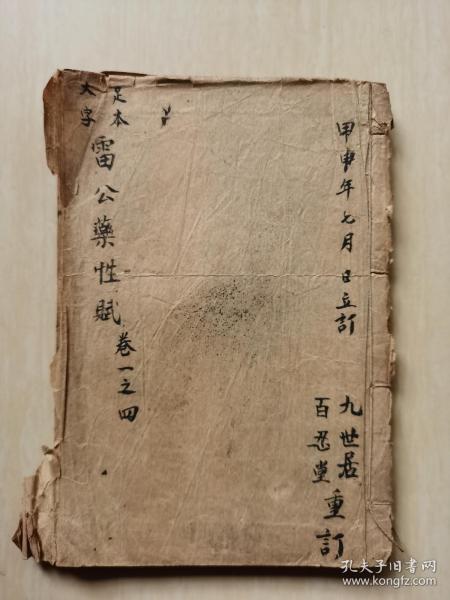 甲申年七月 日立訂
九世居
百忍堂
重訂
足本
大字
雷公藥性賦
卷一之四
孔夫子旧书网
www.kongfz.com